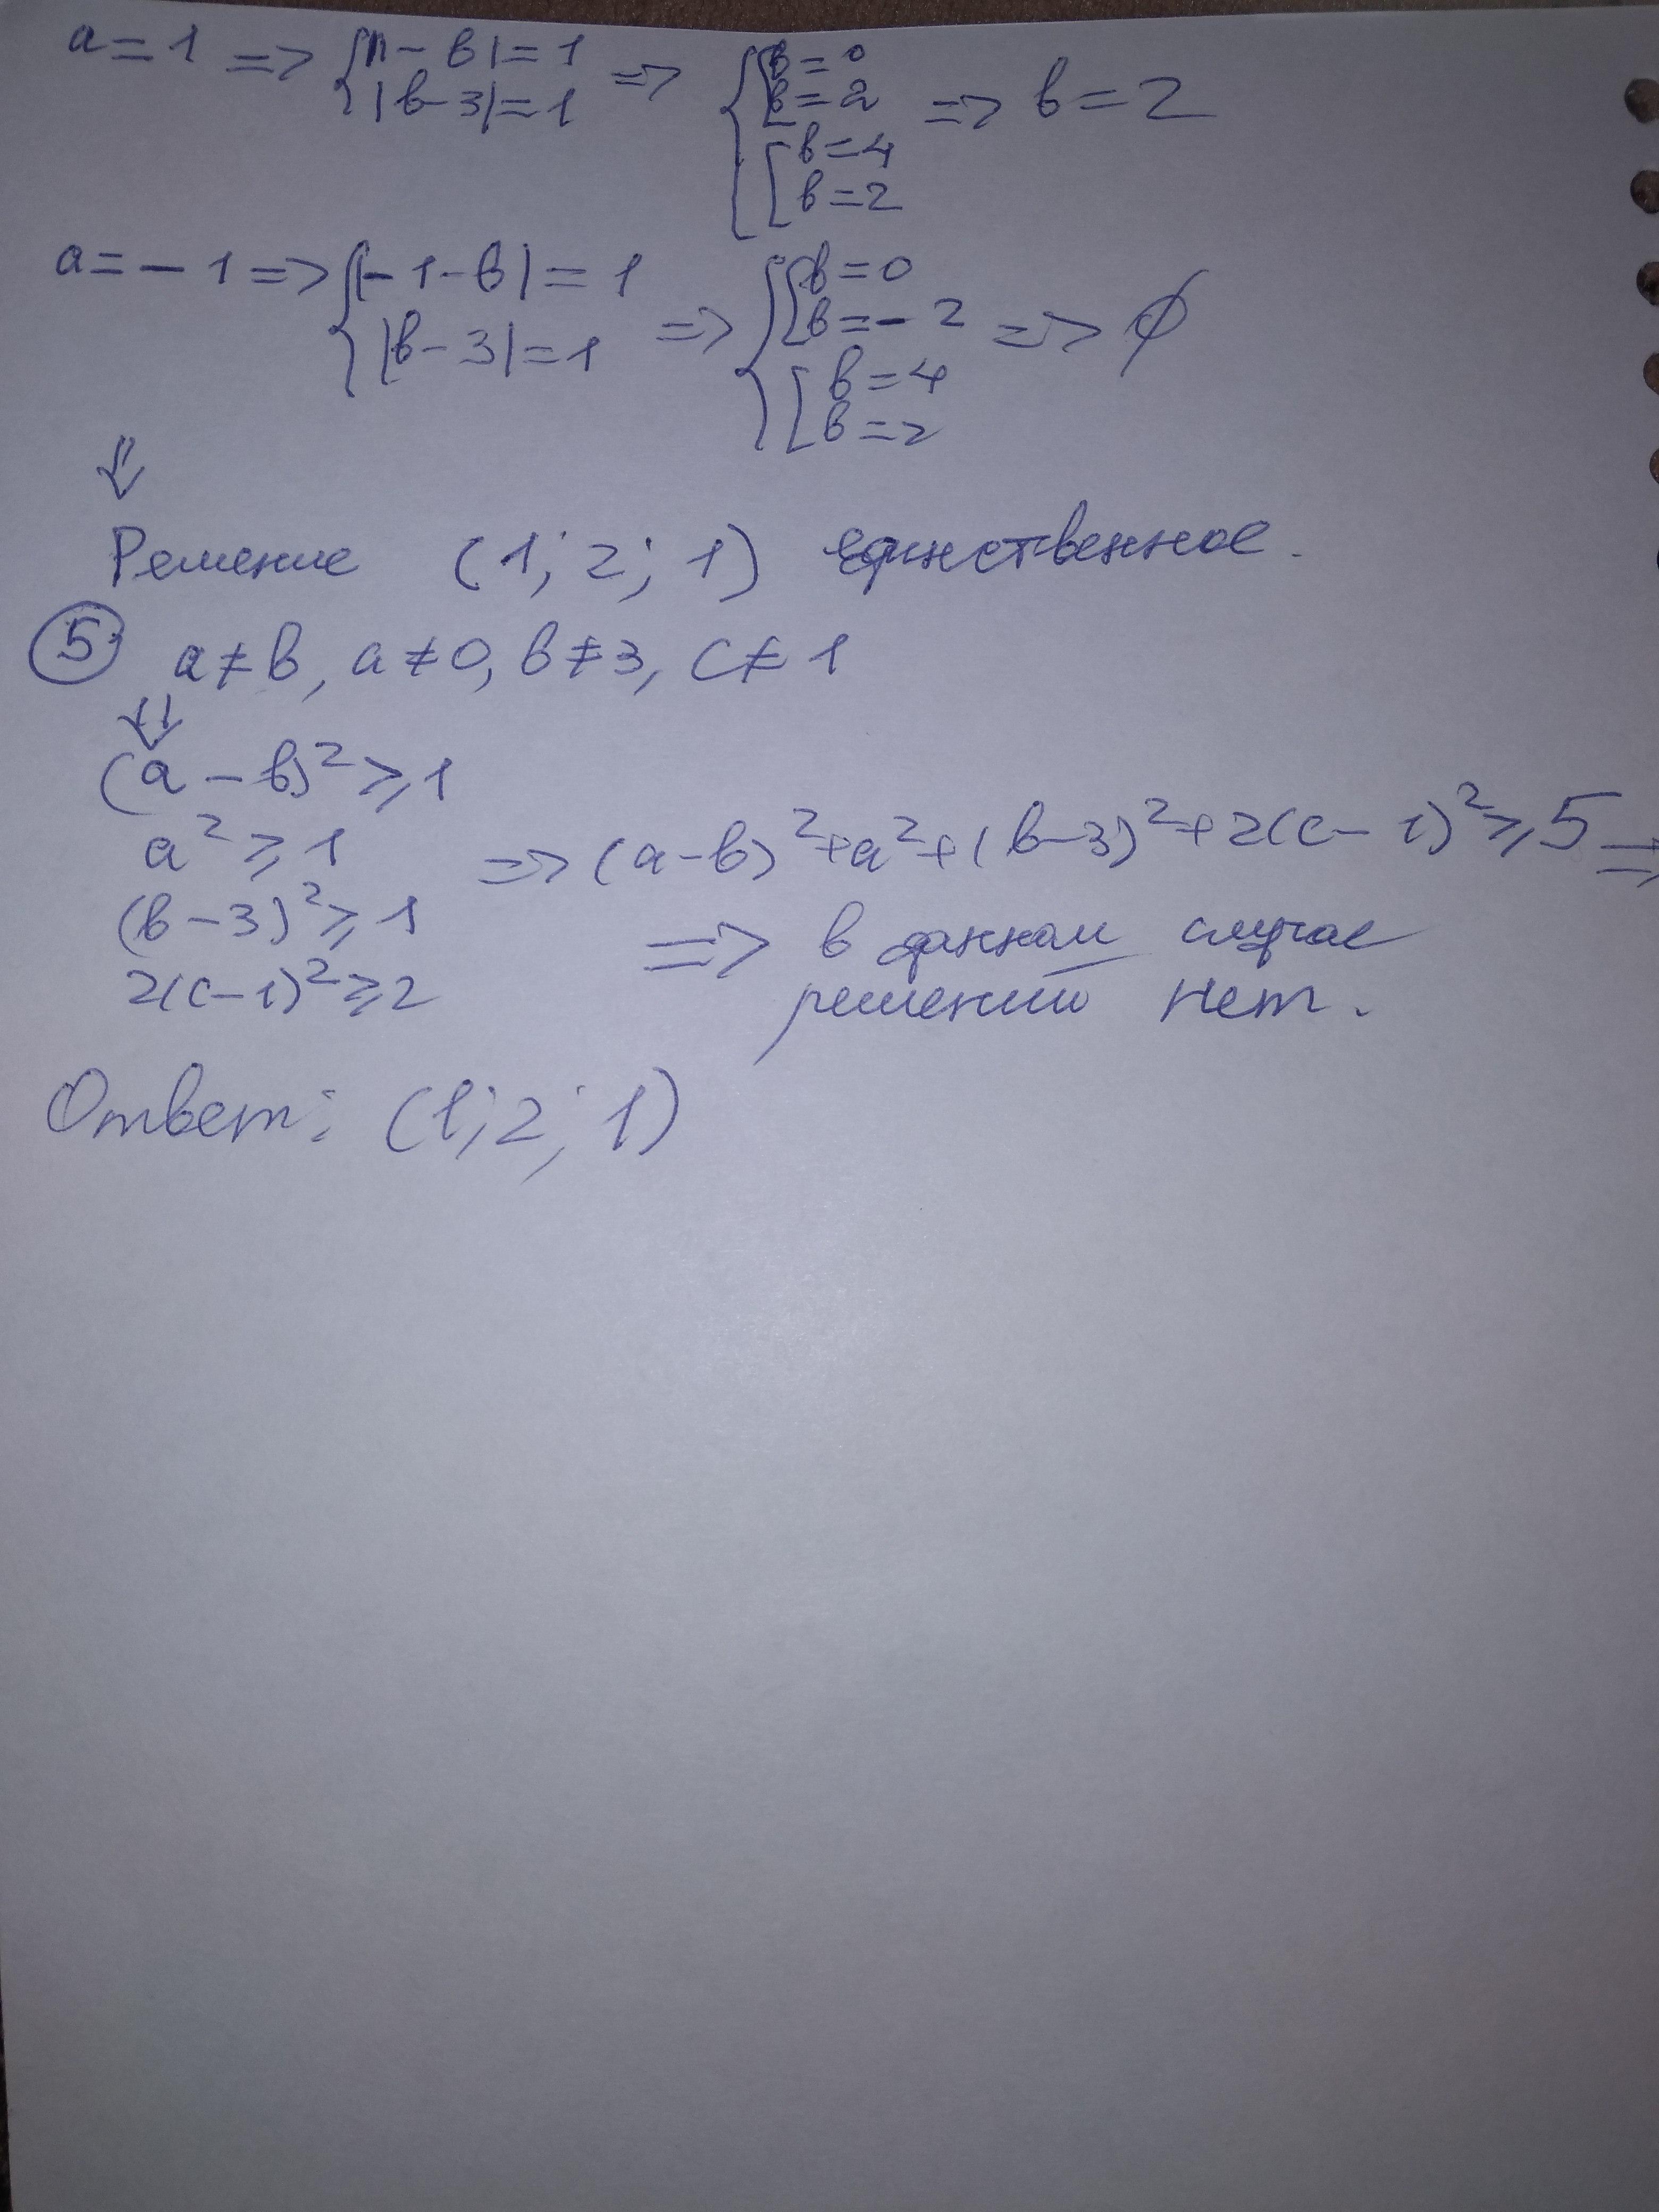 a = 1 => { |1 - b| = 1 |b - 3| = 1 => { [ b = 0 b = 2 [ b = 4 b = 2 => b = 2
a = - 1 => { |- 1 - b| = 1 |b - 3| = 1 => { [ b = 0 b = - 2 [ b = 4 b = 2 => ∅
⇓
Решение (1; 2; 1) единственное.
⑤ a ≠ b, a ≠ 0, b ≠ 3, c ≠ 1
⇓
(a - b)² ≥ 1
a² ≥ 1
(b - 3)² ≥ 1
2(c - 1)² ≥ 2
=> (a - b)² + a² + (b - 3)² + 2(c - 1)² ≥ 5 =>
=> в данном случае
решений нет.
Ответ: (1; 2; 1)